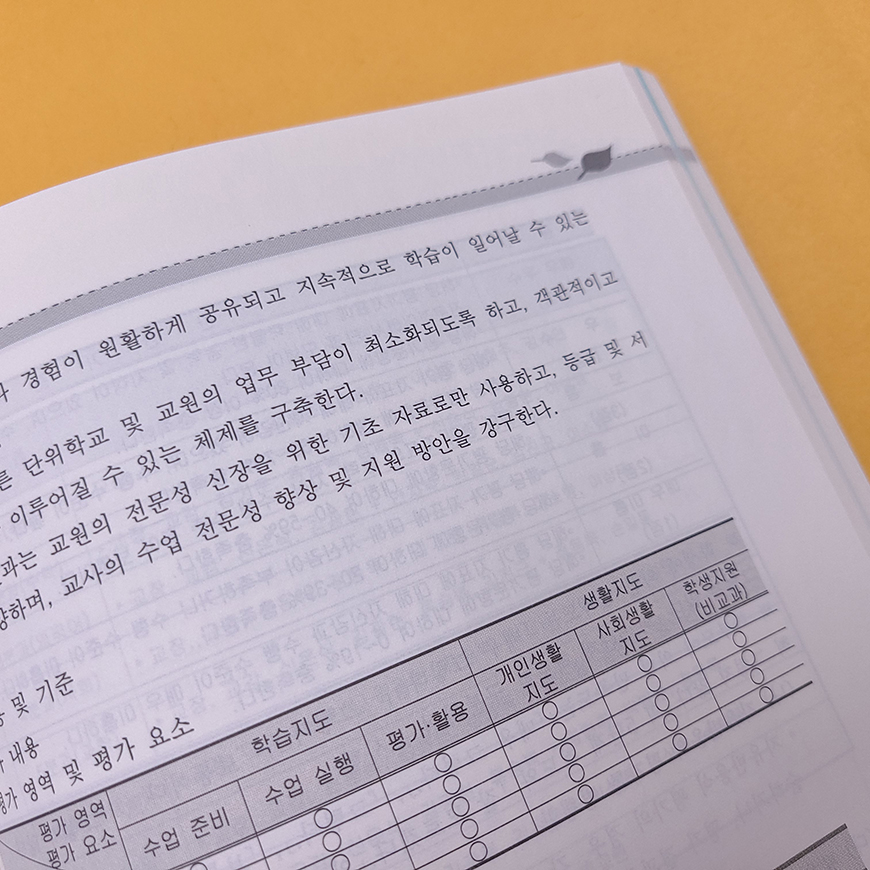 경험이 원활하게 공유되고 지속적으로 학습이 일어날 수 있는
단위학교 및 교원의 업무 부담이 최소화되도록 하고, 객관적이고
이루어질 수 있는 체제를 구축한다.
교원의 전문성 신장을 위한 기초 자료로만 사용하고, 등급 및 서
교사의 수업 전문성 향상 및 지원 방안을 강구한다.
및 기준
내용
영역 및 평가 요소
평가 영역
평가 요소
학습지도
생활지도
학생지원
(비교과)
수업 준비
수업 실행
평가·활용
개인생활
지도
사회생활
지도
○ ○ ○ ○ ○
○ ○ ○ ○ ○
○ ○ ○ ○ ○
○ ○ ○ ○